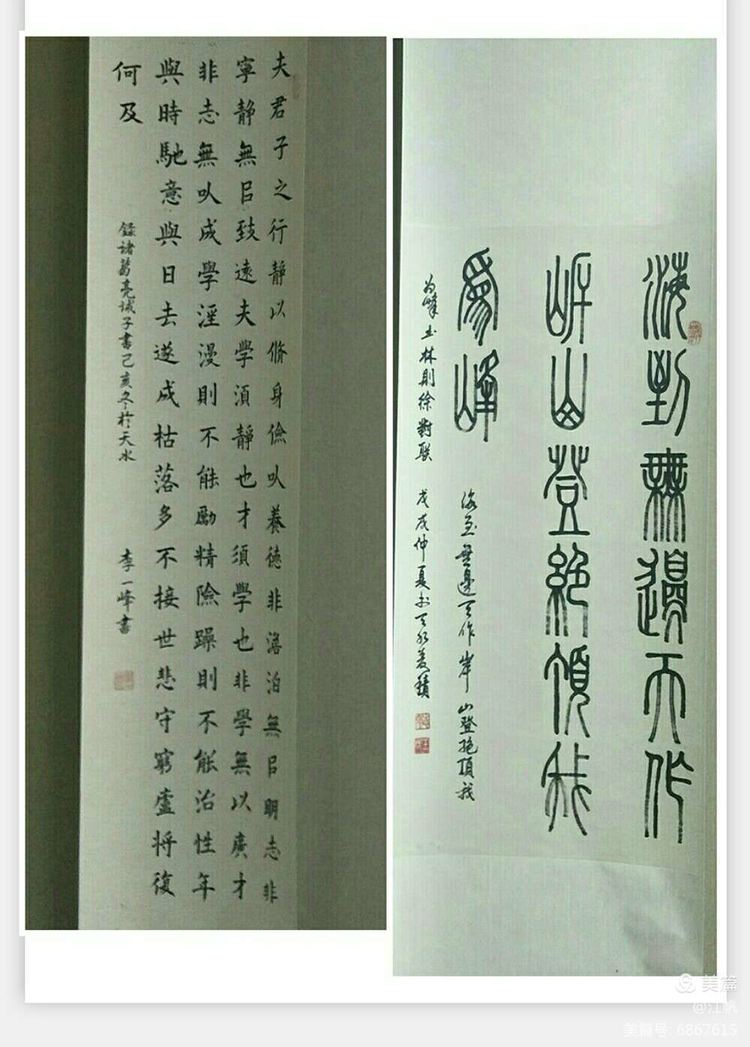 夫君子之行靜以脩身儉㕥養德非澹泊無㠯明志非
寧靜無㠯致遠夫學湏靜也才須學也非學無以廣才
非志無㕥成學淫漫則不能勵精險躁則不能治性年
與時馳意與日去遂成枯落多不接世悲守窮廬將復
何及
錄諸葛亮誡子書己亥冬於天水 李一峰書
海到無邊天作
岸山登絕頂我
為峰
海至無邊天作岸 山登絕頂我
为峰 书林則徐對联 戊戌仲夏於天水
美篇
@江帆
美篇号: 6867615